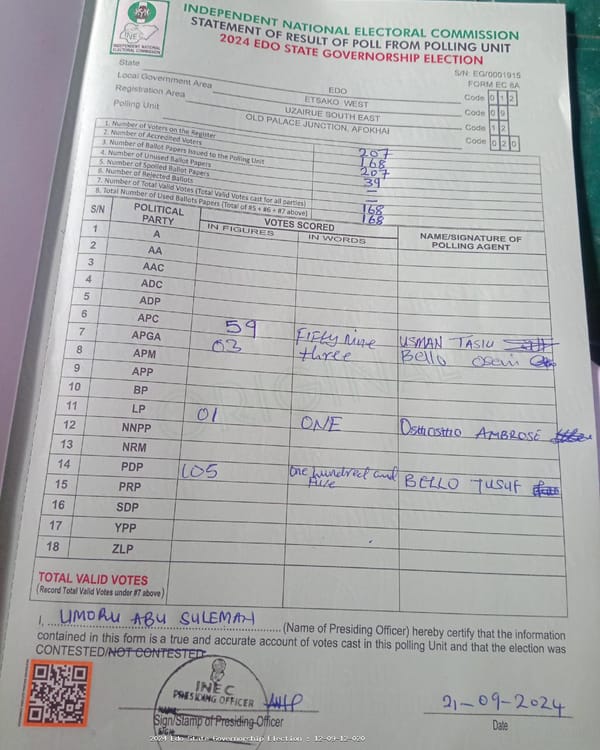 INDEPENDENT NATIONAL ELECTORAL COMMISSION
STATEMENT OF RESULT OF POLL FROM POLLING UNIT
2024 EDO STATE GOVERNORSHIP ELECTION
INDEPENDENT NATIONAL ELECTORAL COMMISSION
S/N: EG/0001915
FORM EC 8A
State EDO Code 012
Local Government Area ETSAKO WEST Code 09
Registration Area UZAIRUE SOUTH EAST Code 12
Polling Unit OLD PALACE JUNCTION, AFOKHAI Code 020
1. Number of Voters on the Register 207
2. Number of Accredited Voters 168
3. Number of Ballot Papers Issued to the Polling Unit 207
4. Number of Unused Ballot Papers 39
5. Number of Spoiled Ballot Papers –
6. Number of Rejected Ballots –
7. Number of Total Valid Votes (Total Valid Votes cast for all parties) 168
8. Total Number of Used Ballots Papers (Total of #5 + #6 + #7 above) 168
S/N POLITICAL PARTY VOTES SCORED NAME/SIGNATURE OF POLLING AGENT
IN FIGURES IN WORDS
1 A
2 AA
3 AAC
4 ADC
5 ADP
6 APC 59 FIFTY Nine USMAN TASIU
7 APGA 03 three Bello
8 APM
9 APP
10 BP
11 LP 01 ONE AMBROSE
12 NNPP
13 NRM
14 PDP 105 One hundred and Five BELLO YUSUF
15 PRP
16 SDP
17 YPP
18 ZLP
TOTAL VALID VOTES
(Record Total Valid Votes under #7 above)
I, UMORU ABU SULEMAN (Name of Presiding Officer) hereby certify that the information
contained in this form is a true and accurate account of votes cast in this polling Unit and that the election was
CONTESTED/NOT CONTESTED.
INEC
PRESIDING OFFICER
Sign/Stamp of Presiding Officer
21-09-2024
Date
2024 Edo State Governorship Election : 12-09-12-020